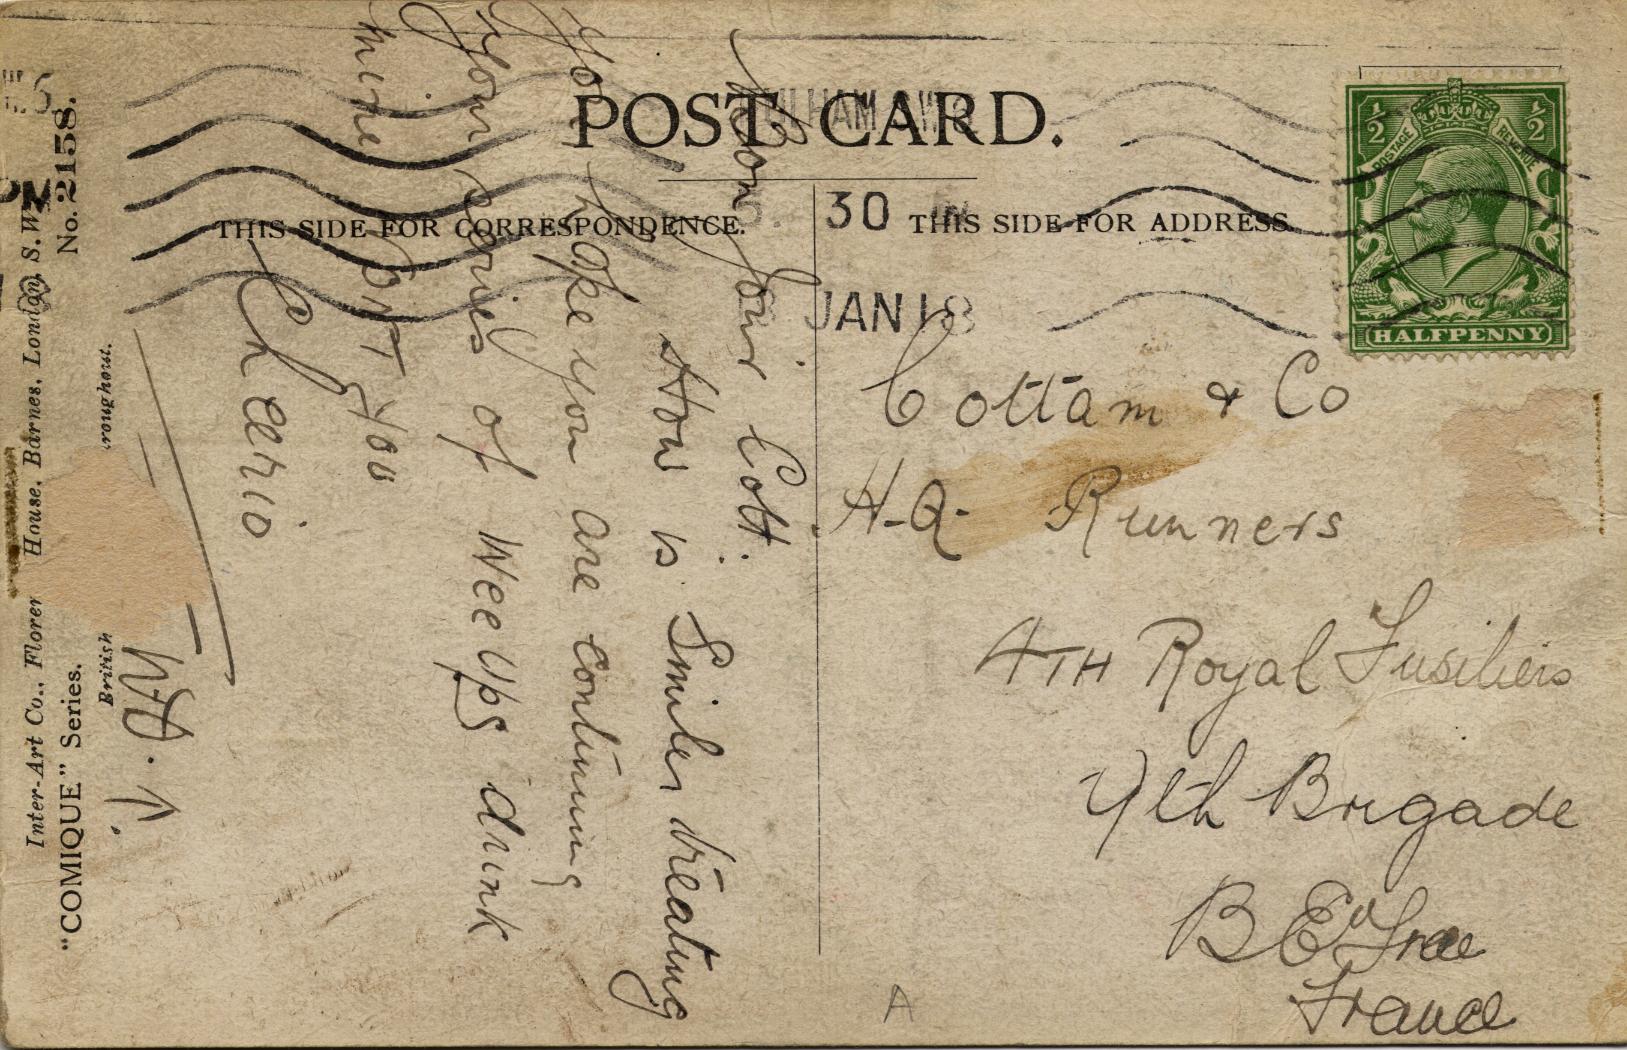 POST CARD.
THIS SIDE FOR CORRESPONDENCE.
THIS SIDE FOR ADDRESS.
FULHAM S.W.6
30
JAN 18
HALFPENNY
POSTAGE
REVENUE
½
½
Cottam & Co
H-Q- Runners
4TH Royal Fusiliers
9th Brigade
B E F
France
A
Mon Jour Cott.
How is Smiler treating
You hope you are continuing
your series of Wee Ups drink
mine DNT You
Cheerio
PM
No. 2158.
Inter-Art Co., Floren House, Barnes, London, S.W.
"COMIQUE" Series.
British roughout.